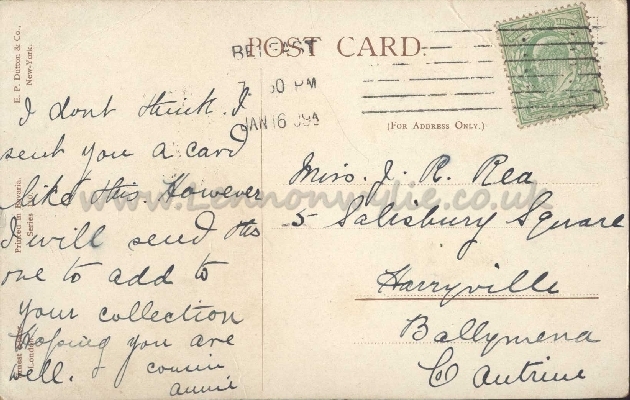 POST CARD.
(FOR ADDRESS ONLY.)
BELFAST
JAN 16
E. P. Dutton & Co.,
New-York.
Printed in Bavaria.
I dont think I
sent you a card
like this. However
I will send this
one to add to
your collection
Hoping you are
well.
cousin
annie
Miss. J. R. Rea
5 Salisbury Square
Harryville
Ballymena
Co Antrim